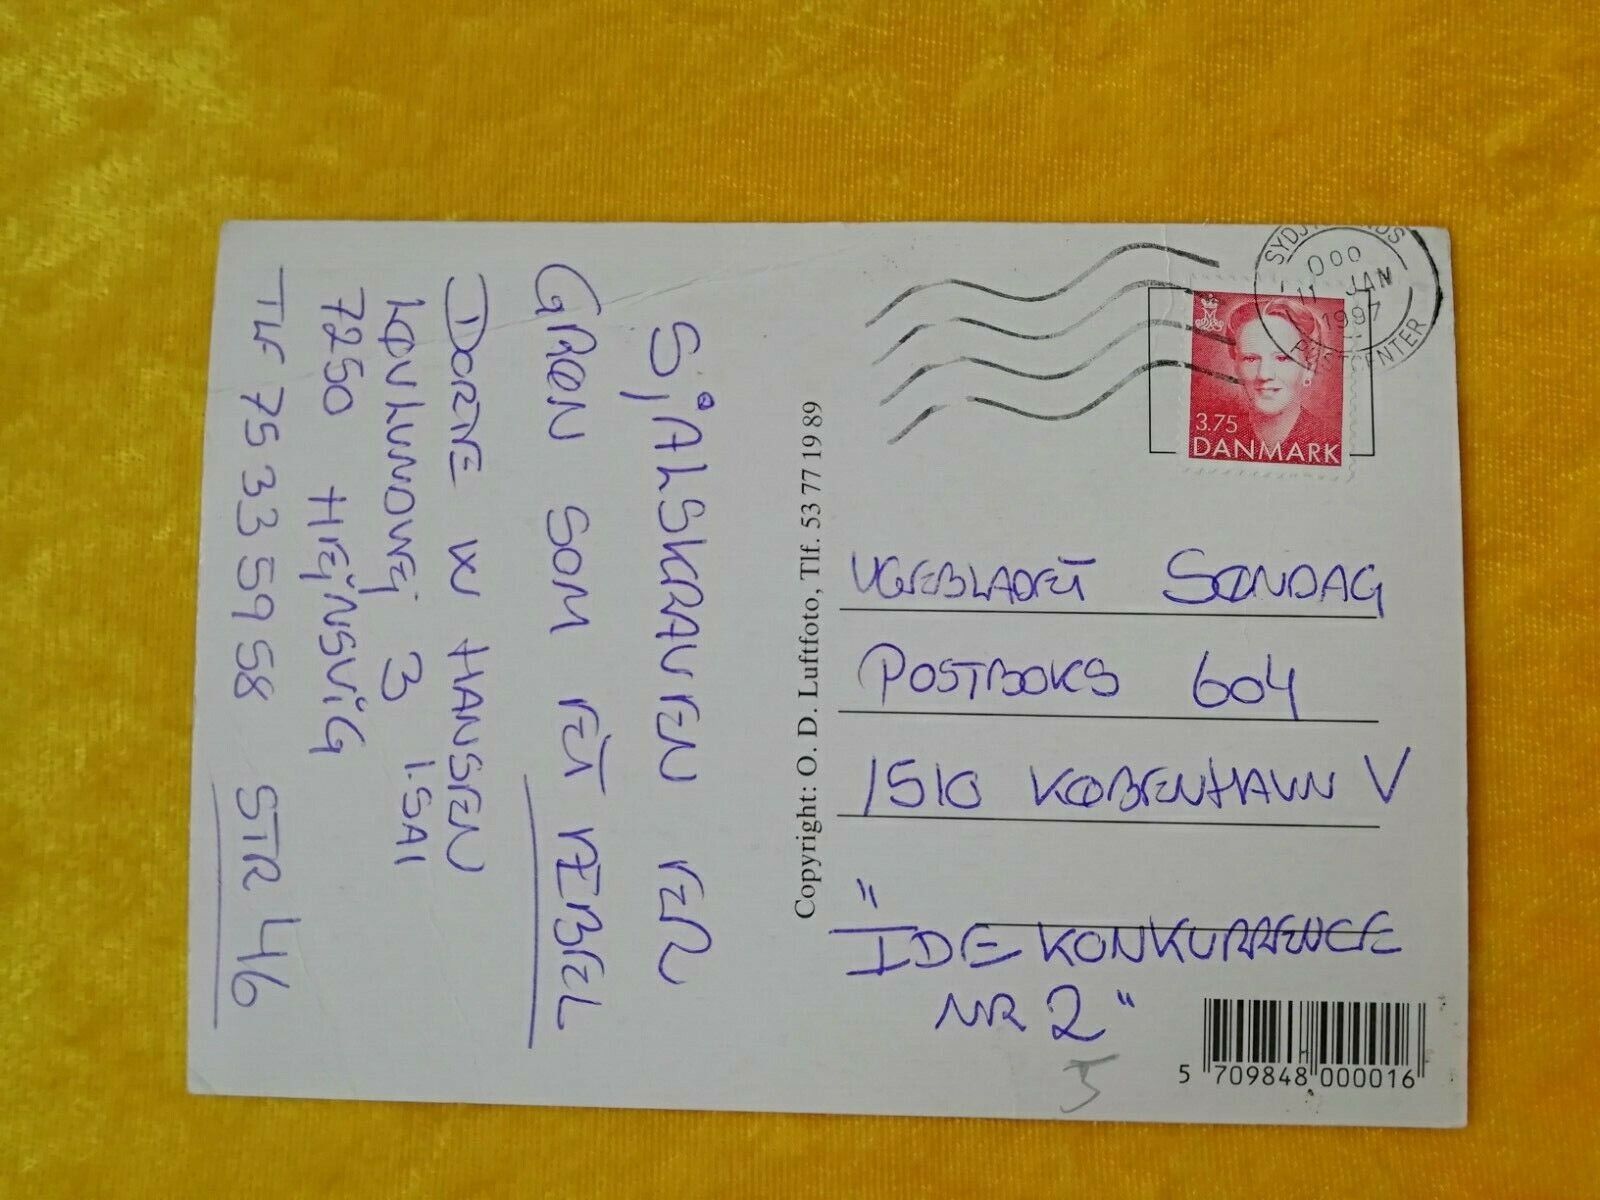 SjÅLSKRAVEN ER
GRØN SOM ET ÆBEL
DORTE W HANSEN
LØVLUNDVEj 3 1.SAL
7250 HEjNSViG
TLF 75 33 59 58 STR 46
Copyright: O. D. Luftfoto, Tlf. 53 77 19 89
000
11 JAN
1997
3.75
DANMARK
UGEBLADET SØNDAG
POSTBOKS 604
1510 KØBENHAVN V
"IDE KONKURRENCE
NR 2"
5
5 709848 000016